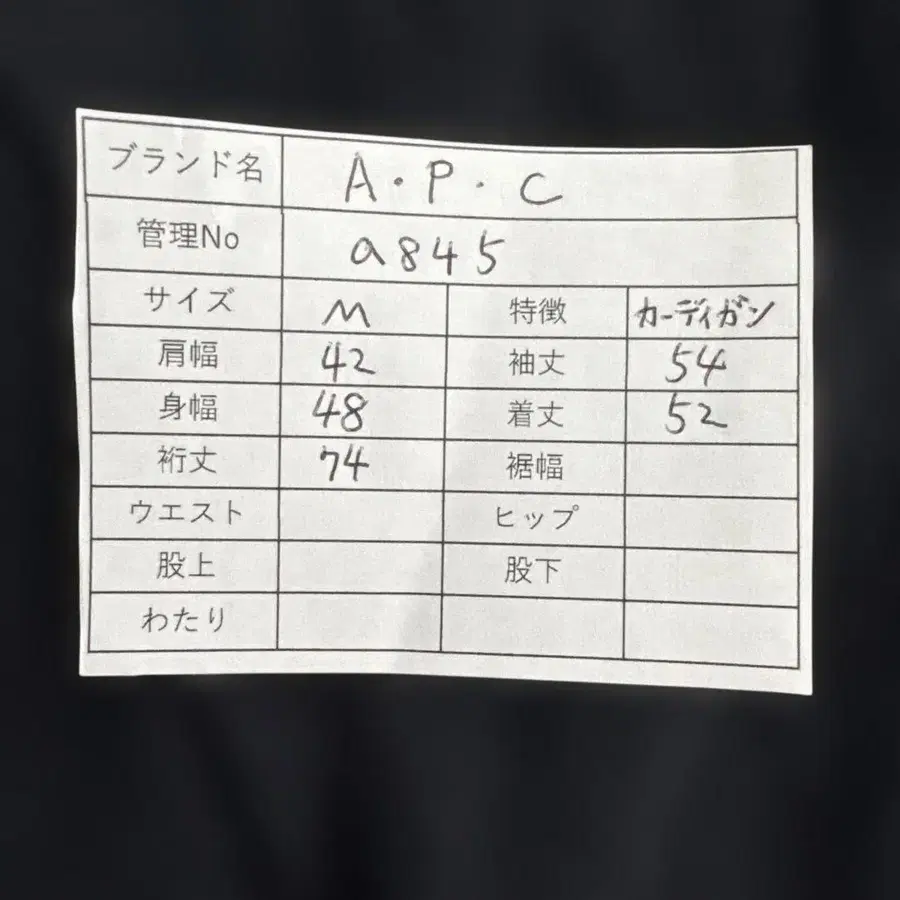 ブランド名 A・P・C
管理No a845
サイズ M 特徴 カーディガン
肩幅 42 袖丈 54
身幅 48 着丈 52
裄丈 74 裾幅
ウエスト ヒップ
股上 股下
わたり